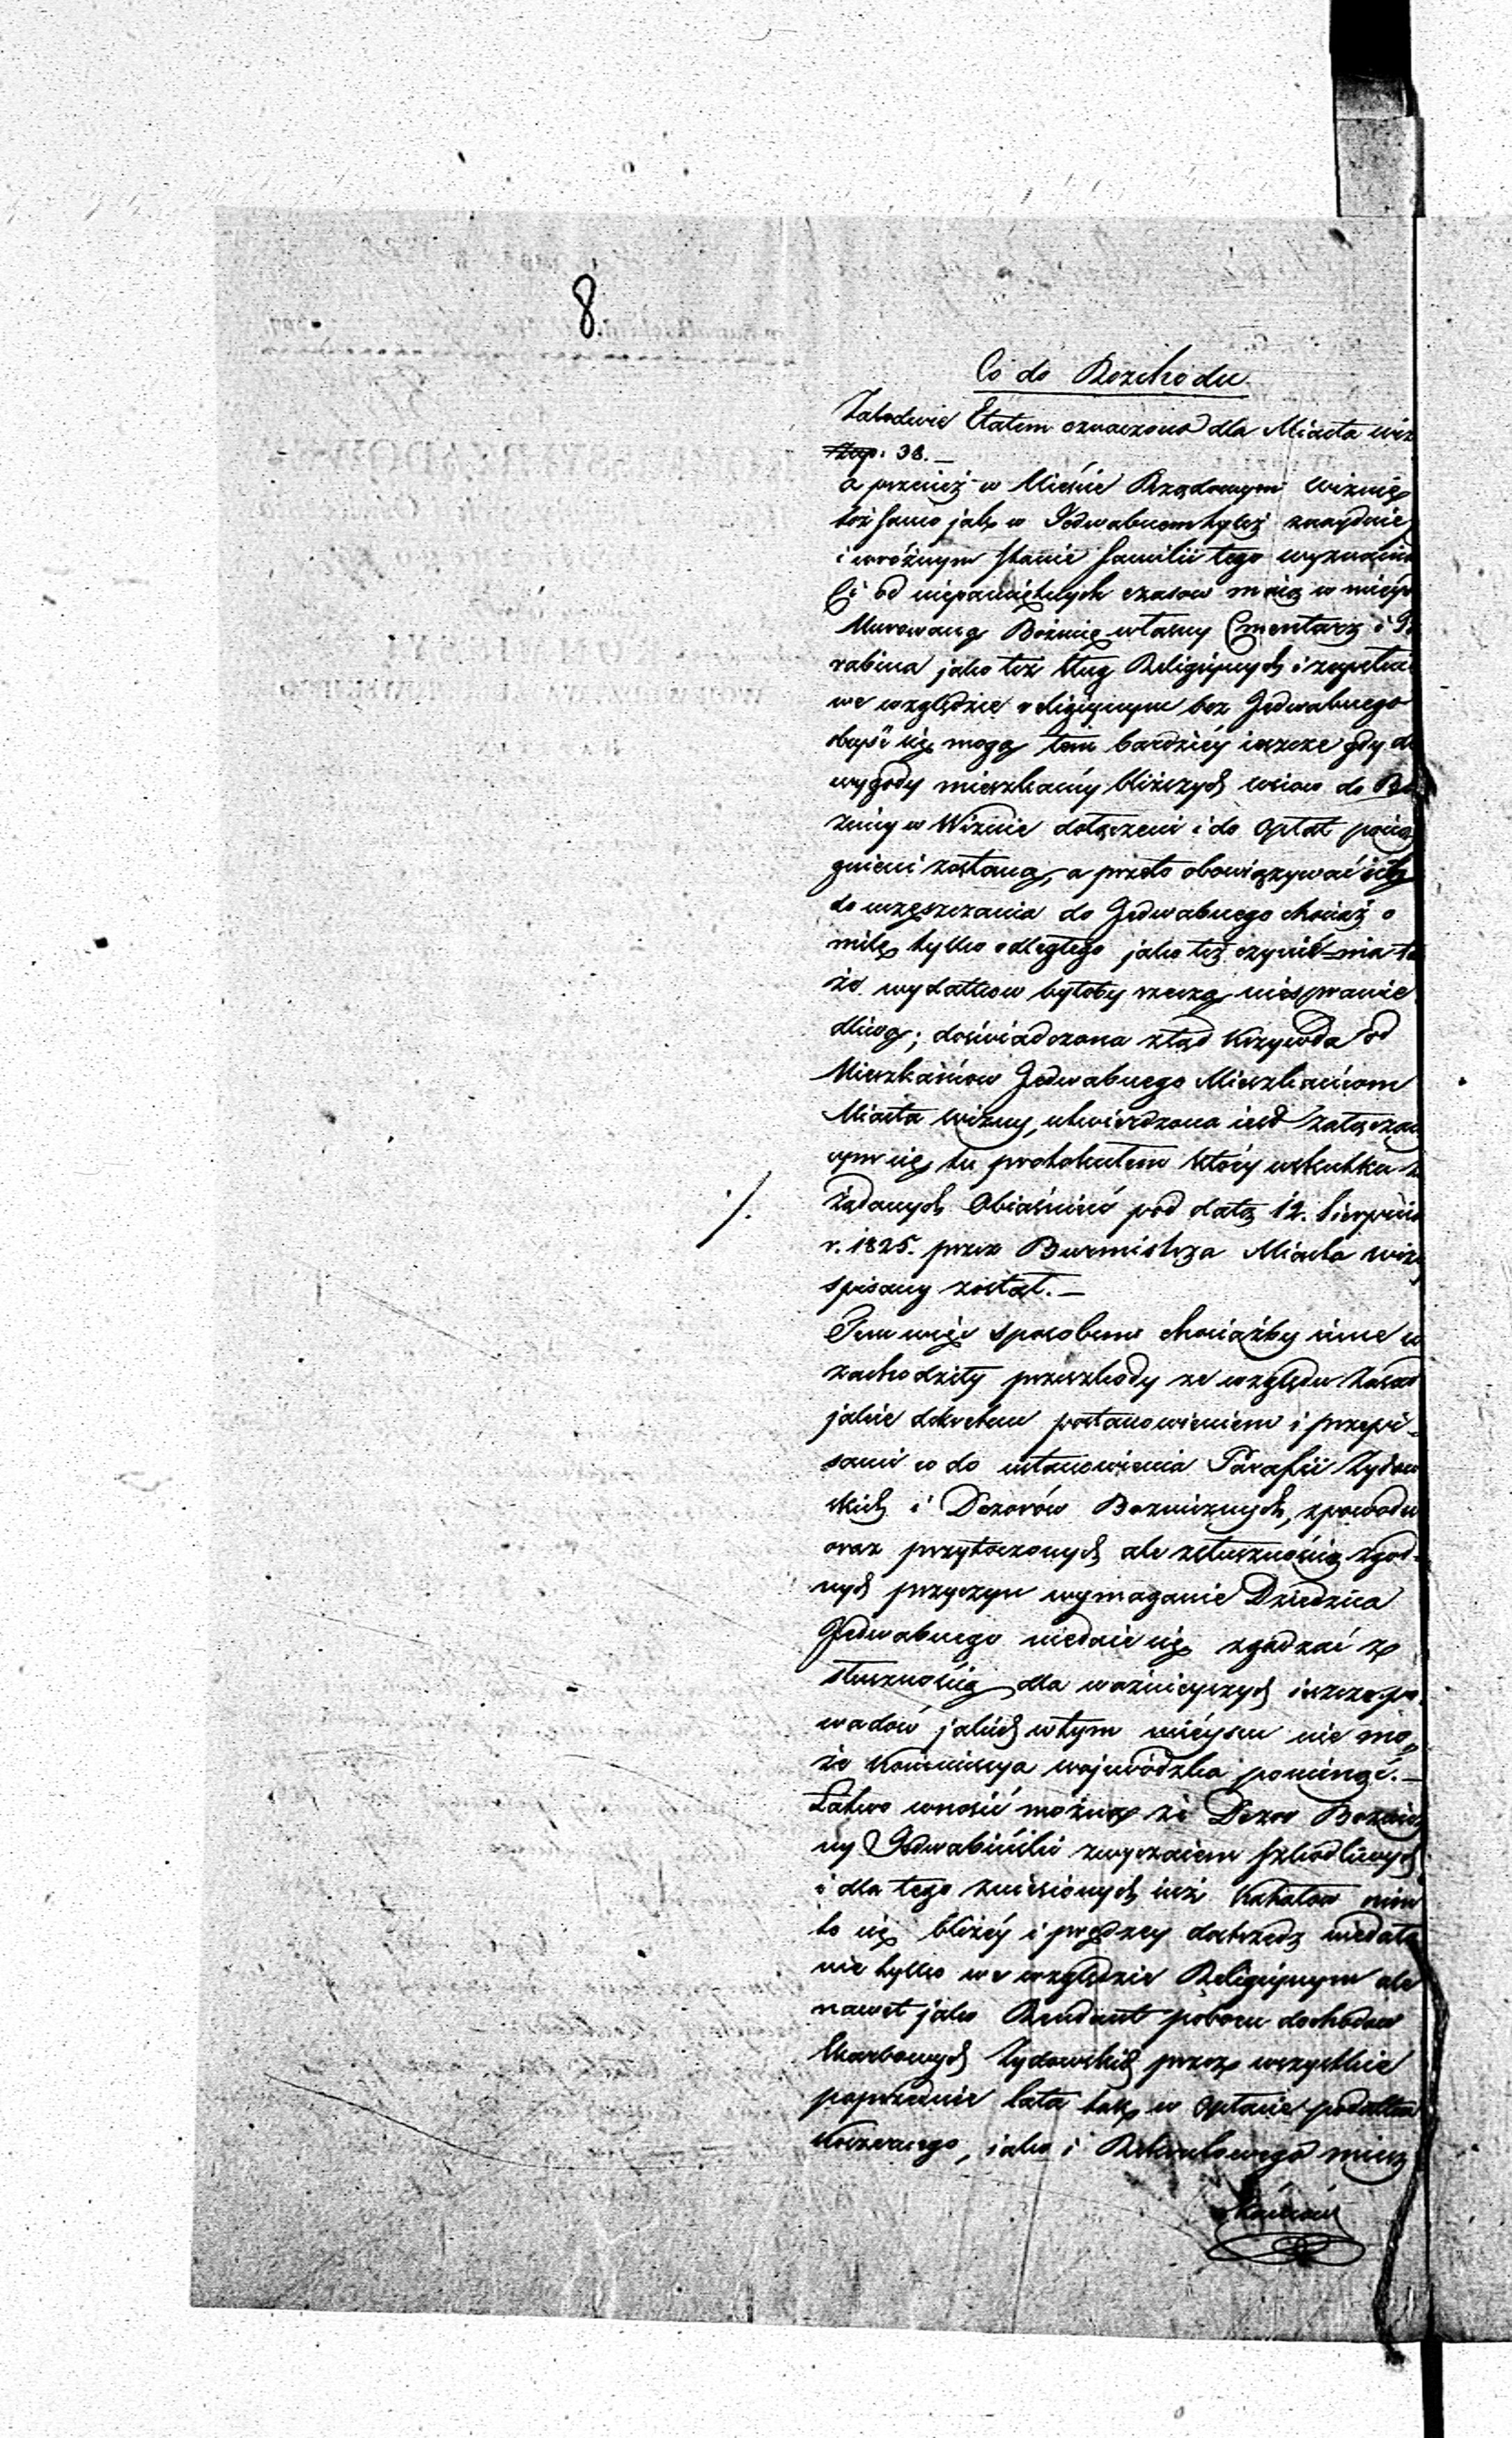 8.
Co do Rozchodu
Zaledwie Etatem oznaczono dla Miasta wiz
Rzp. 38. —
a przecież w Mieście Rządowym Wiznie
toż samo jak w Jedwabnem tyleż znayduie
i w różnym stanie familii tego wyznania
Ci od niepamiętnych czasow maią w mieyscu
Murowaną Bożnicę własny Cmentarz i
rabina jako też sług Religijnych i zupełnie
we względzie religiynym bez Jedwabnego
obeyść się mogą tem bardziey ieszcze gdy dl
wygody mieszkańcy bliższych wsiow do Bo
żnicy w Wiznie dołączeni i do Opłat pocią
gnieni zostaną, a przeto obowiązywać ich
do uczęszczania do Jedwabnego chociaż o
milę tylko odległego jako też czynić ta
że wydatkow byłoby rzeczą niesprawie
dliwą; doświadczona ztąd krzywda od
Mieszkańcow Jedwabnego Mieszkańcom
Miasta Wizny, utwierdzona iest załączaią
cym się tu protokułem który w skutku
żądanych Obiaśnień pod datą 12. Sierpnia
./. r. 1825. przez Burmistrza Miasta wizn
spisany został. —
Tem więc sposobem chociażby inne
zachodziły przeszkody ze względu zasad
jakie dekretem postanowieniem i przepi-
sami co do ustanowienia Parafii Żydow
skich i Dozorów Bożnicznych, z powodu
oraz przytoczonych ale z słusznością zgod-
nych przyczyn wymaganie Dziedzica
Jedwabnego niedaie się zgadzać z
słusznością dla ważnieyszych ieszcze po
wodów jakich w tym mieyscu nie mo„
że Kommissya wojewódzka pominąć. —
Łatwo wnosić można że Dozor Bożnicz
ny Jedwabiński zwyczaiem szkodliwych
i dla tego zniesionych iuż Kahałow nim
to się bliżey i prędzey dostrzedz niedało
nie tylko we względzie Religiynym ale
nawet jako Rendant poboru dochodow
Skarbowych Żydowskich przez wszystkie
poprzednie lata tak w Opłacie podatku
Koszernego, iako i Rekrutowego miesz
kańców